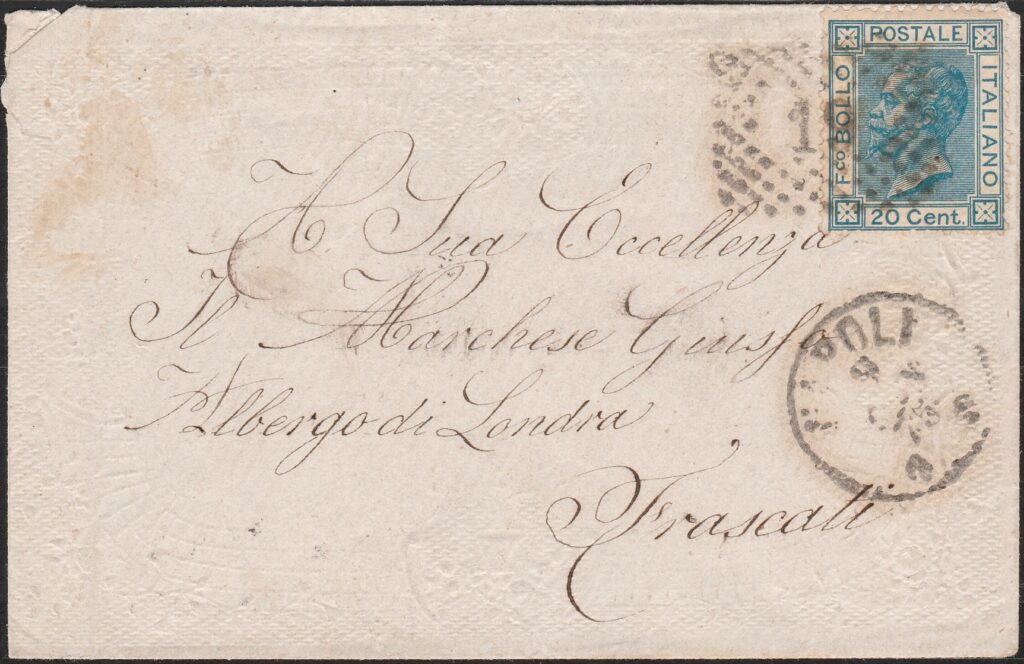 POSTALE
ITALIANO
Fco BOLLO
20 Cent.
1
A. Sua Eccellenza
Il Marchese Giusso
Albergo di Londra
Frascati
NAPOLI
9